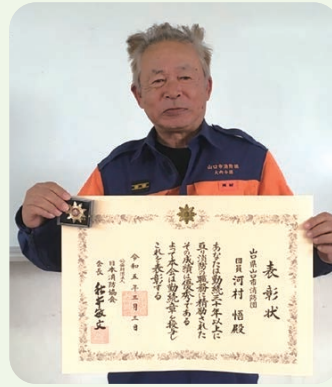 表彰状
山口県山口市消防団
団員 河村 悟殿
あなたは勤続三十年以上に
亘り消防の職務に精励された
その成績は優秀である
よって本会は勤続章を授与し
これを表彰する
令和五年三月三日
日本消防協会
会長 秋本敏文